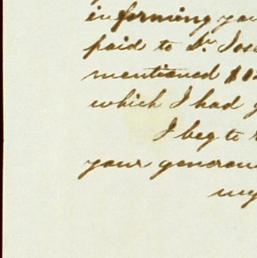 informing you
paid to Dr. Jos
mentioned $
which I had
I beg to
your generous
my